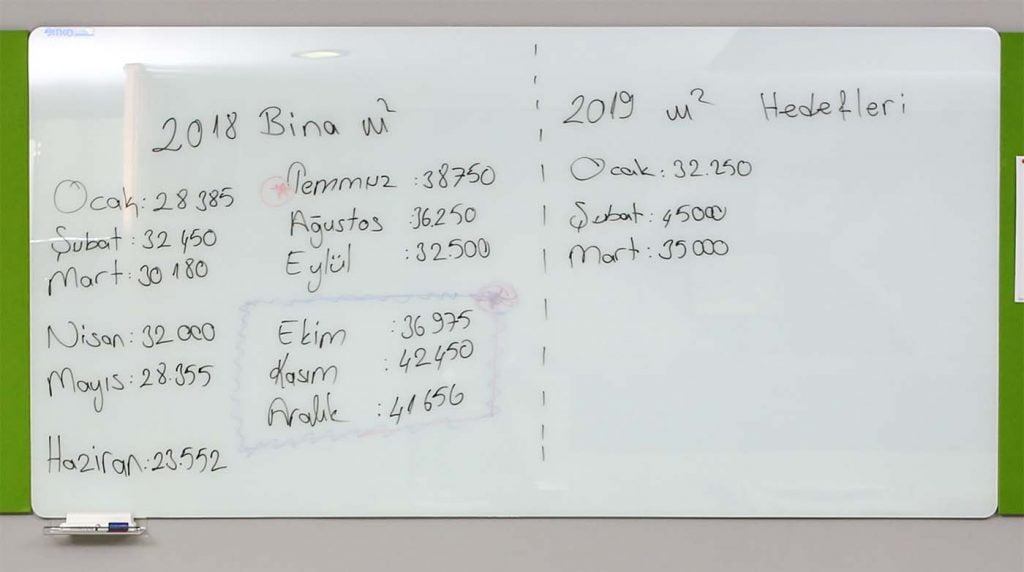 2018 Bina m²
Ocak: 28 385
Şubat: 32 450
Mart: 30 180
Nisan: 32 000
Mayıs: 28.355
Haziran: 23.552
Temmuz: 38750
Ağustos: 36.250
Eylül: 32.500
Ekim: 36 975
Kasım: 42450
Aralık: 41656
2019 m² Hedefleri
Ocak: 32.250
Şubat: 45000
Mart: 35000